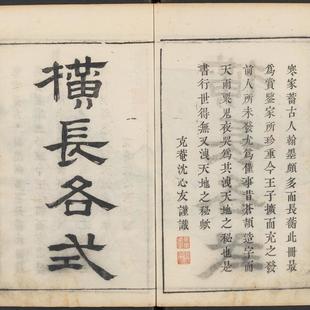 寒家蓄古人翰墨頗多而長蘅此冊最
爲賞鑒家所珍重今王子擴而充之發
前人所未發尤爲僅事昔蒼頡造字而
天雨粟鬼夜哭爲其洩天地之秘也是
書行世得無又洩天地之秘歟
克菴沈心友謹識
橫長各式